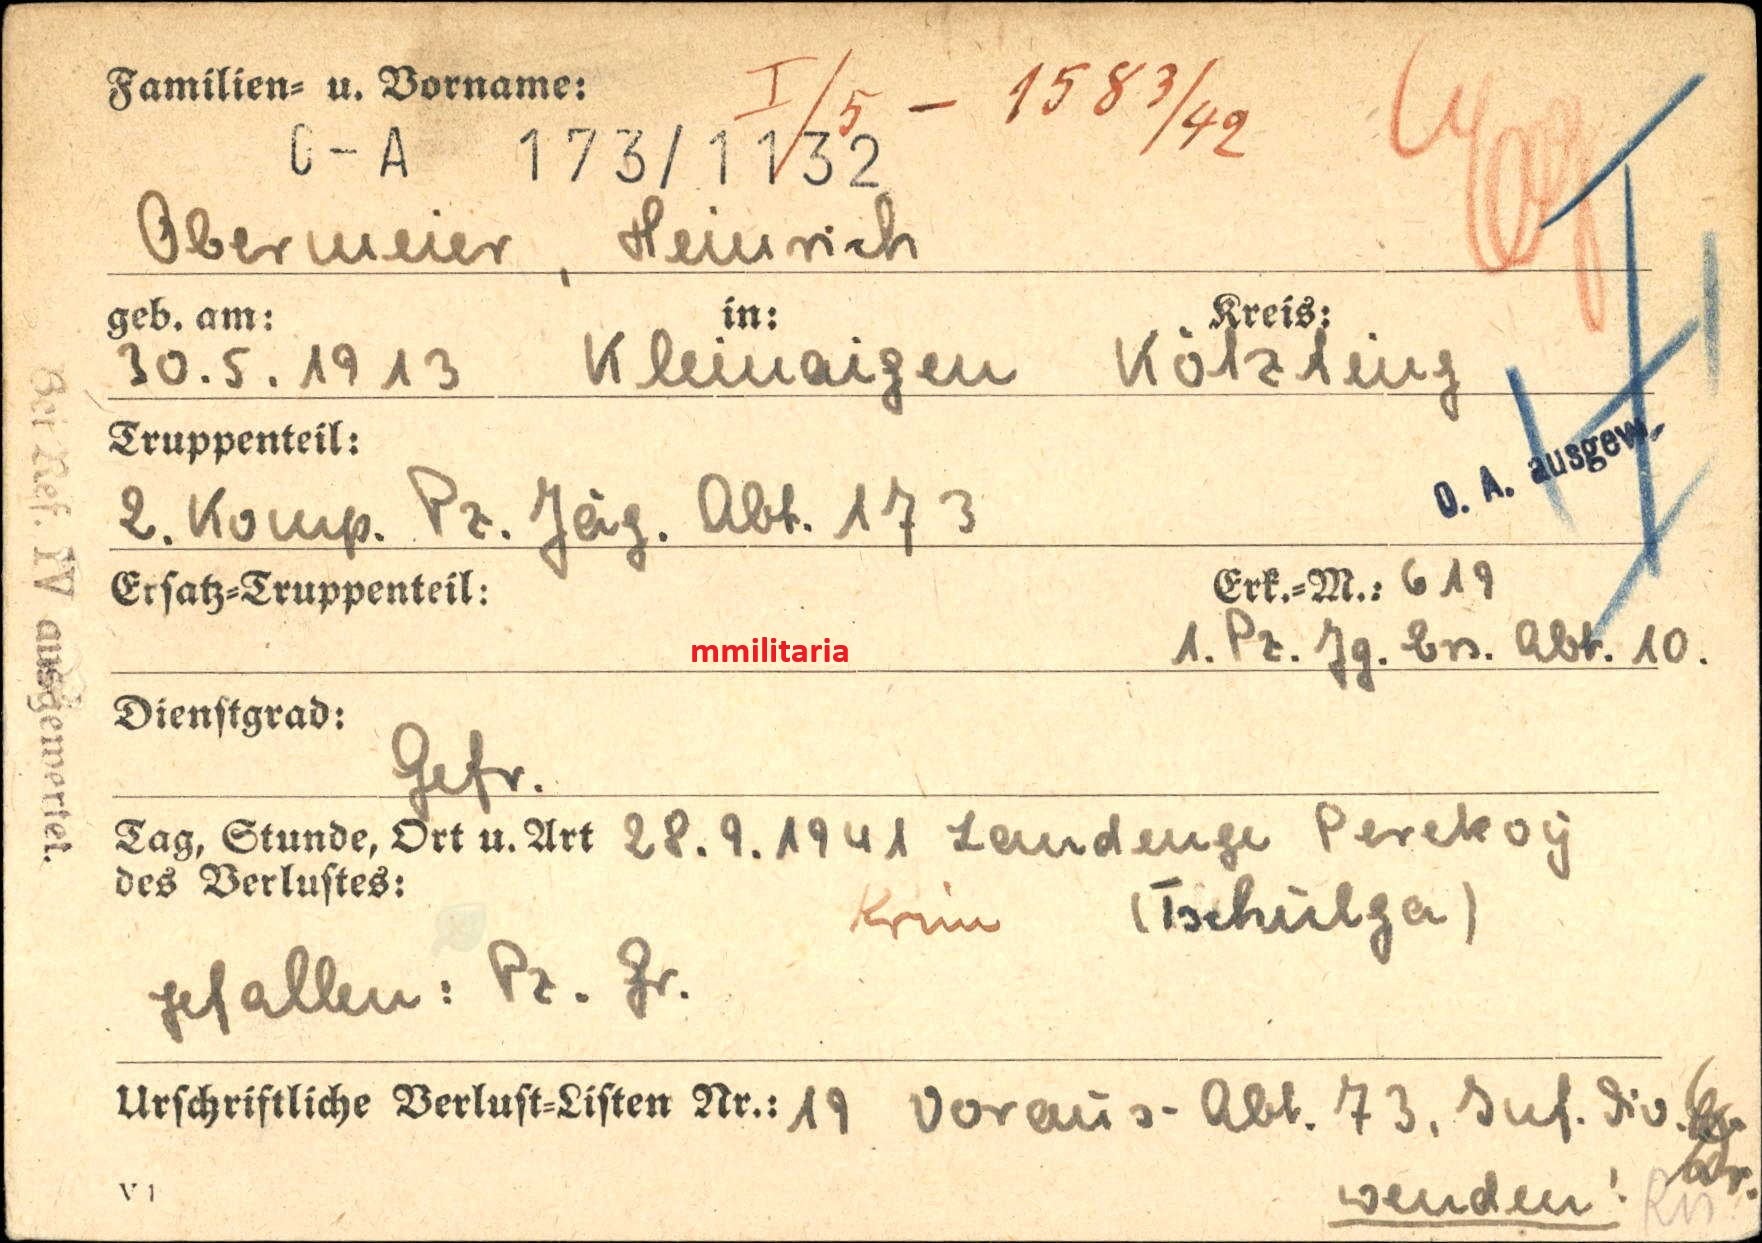 Familien- u. Vorname:
I/5 - 1583/42
C-A 173/1132
Obermeier, Heinrich
geb. am: in: Kreis:
30.5.1913 Kleinaigen Kötzting
Truppenteil:
O. A. ausgew.
2. Komp. Pz. Jäg. Abt. 173
Ersatz-Truppenteil: Erk.-M.: 619
mmilitaria
1. Pz. Jg. Ers. Abt. 10.
Dienstgrad:
Gefr.
Tag, Stunde, Ort u. Art 28.9.1941 Landenge Perekop
des Verlustes:
Krim (Tschulga)
gefallen: Pz. Gr.
Urschriftliche Verlust-Listen Nr.: 19 Voraus-Abt. 73. Inf. Div.
wenden!
V 1
Bei Ref. IV ausgewertet.